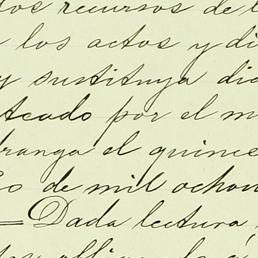 los recursos de l
los actos y di
y sustituya dic
teado por el m
rango el quince
de mil ochoci
Dada lectura